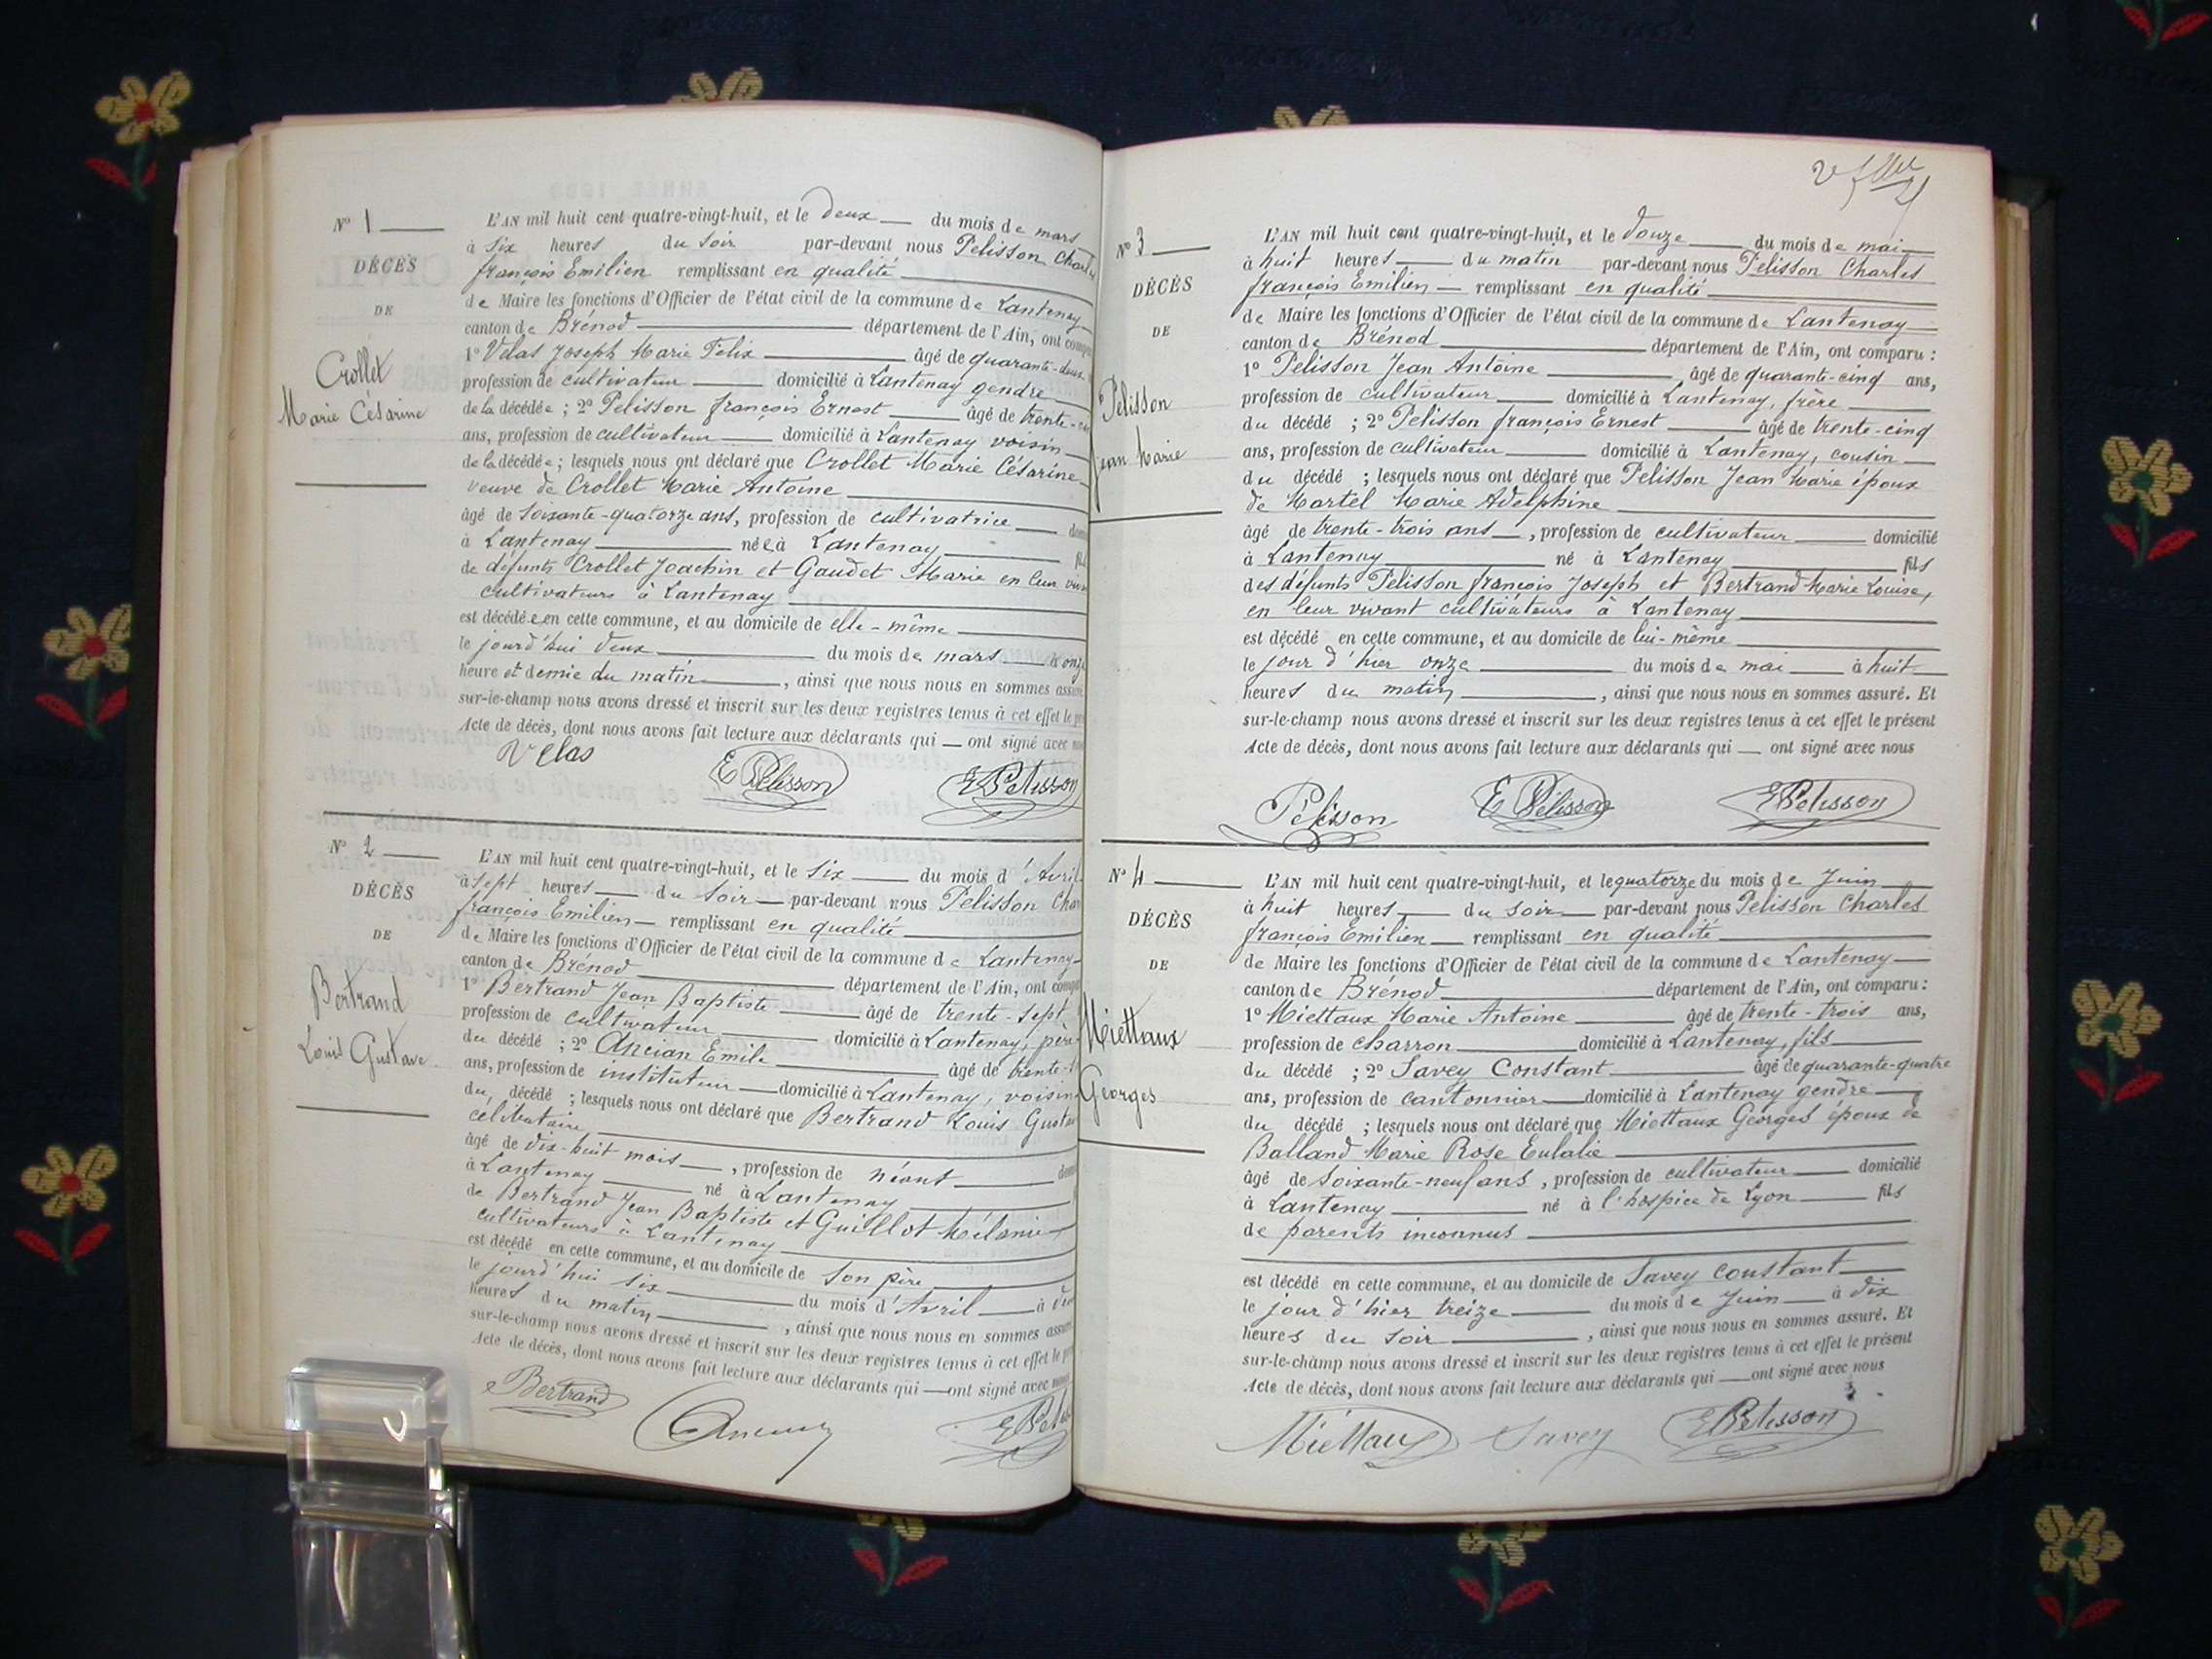 Nº 1
DÉCÈS
DE
Crollet
Marie Césarine
L'AN mil huit cent quatre-vingt-huit, et le deux du mois de mars
à six heures du soir par-devant nous Pelisson Charles
françois Emilien remplissant en qualité
de Maire les fonctions d'Officier de l'état civil de la commune de Lantenay
canton de Brénod département de l'Ain, ont comparu
1º Velas Joseph Marie Félix âgé de quarante-deux
profession de cultivateur domicilié à Lantenay gendre
de la décédée ; 2º Pelisson françois Ernest âgé de trente-
ans, profession de cultivateur domicilié à Lantenay voisin
de la décédée ; lesquels nous ont déclaré que Crollet Marie Césarine
veuve de Crollet Marie Antoine
âgé de soixante-quatorze ans, profession de cultivatrice
à Lantenay née à Lantenay
de défunts Crollet Joachin et Gaudet Marie en leur
cultivateurs à Lantenay
est décédée en cette commune, et au domicile de elle-même
le jourd'hui deux du mois de mars à onze
heure et demie du matin, ainsi que nous nous en sommes assuré
sur-le-champ nous avons dressé et inscrit sur les deux registres tenus à cet effet le
Acte de décès, dont nous avons fait lecture aux déclarants qui — ont signé avec
Velas E Pélisson E Pelisson
Nº 2
DÉCÈS
DE
Bertrand
Louis Gustave
L'AN mil huit cent quatre-vingt-huit, et le six du mois d'Avril
à sept heures du soir par-devant nous Pelisson
françois Emilien remplissant en qualité
de Maire les fonctions d'Officier de l'état civil de la commune de Lantenay
canton de Brénod département de l'Ain, ont
1º Bertrand Jean Baptiste âgé de trente-sept
profession de cultivateur domicilié à Lantenay, père
du décédé ; 2º Ancian Emile âgé de trente-
ans, profession de instituteur domicilié à Lantenay, voisin
du décédé ; lesquels nous ont déclaré que Bertrand Louis Gustave
célibataire
âgé de dix-huit mois, profession de néant
à Lantenay né à Lantenay
de Bertrand Jean Baptiste et Guillot Mélanie
cultivateurs à Lantenay
est décédé en cette commune, et au domicile de son père
le jourd'hui six du mois d'Avril à
heures du matin, ainsi que nous nous en sommes assuré
sur-le-champ nous avons dressé et inscrit sur les deux registres tenus à cet effet le
Acte de décès, dont nous avons fait lecture aux déclarants qui — ont signé avec
Bertrand Ancian
Nº 3
DÉCÈS
DE
Pelisson
Jean Marie
L'AN mil huit cent quatre-vingt-huit, et le douze du mois de mai
à huit heures du matin par-devant nous Pelisson Charles
françois Emilien remplissant en qualité
de Maire les fonctions d'Officier de l'état civil de la commune de Lantenay
canton de Brénod département de l'Ain, ont comparu :
1º Pelisson Jean Antoine âgé de quarante-cinq ans,
profession de cultivateur domicilié à Lantenay, frère
du décédé ; 2º Pelisson françois Ernest âgé de trente-cinq
ans, profession de cultivateur domicilié à Lantenay, cousin
du décédé ; lesquels nous ont déclaré que Pelisson Jean Marie époux
de Martel Marie Adelphine
âgé de trente-trois ans, profession de cultivateur domicilié
à Lantenay né à Lantenay fils
des défunts Pelisson françois Joseph et Bertrand Marie Louise,
en leur vivant cultivateurs à Lantenay
est décédé en cette commune, et au domicile de lui-même
le jour d'hier onze du mois de mai à huit
heures du matin, ainsi que nous nous en sommes assuré. Et
sur-le-champ nous avons dressé et inscrit sur les deux registres tenus à cet effet le présent
Acte de décès, dont nous avons fait lecture aux déclarants qui — ont signé avec nous
Pelisson E Pélisson E Pelisson
Nº 4
DÉCÈS
DE
Miettaux
Georges
L'AN mil huit cent quatre-vingt-huit, et le quatorze du mois de Juin
à huit heures du soir par-devant nous Pelisson Charles
françois Emilien remplissant en qualité
de Maire les fonctions d'Officier de l'état civil de la commune de Lantenay
canton de Brénod département de l'Ain, ont comparu :
1º Miettaux Marie Antoine âgé de trente-trois ans,
profession de charron domicilié à Lantenay, fils
du décédé ; 2º Savey Constant âgé de quarante-quatre
ans, profession de cantonnier domicilié à Lantenay gendre
du décédé ; lesquels nous ont déclaré que Miettaux Georges époux de
Balland Marie Rose Eulalie
âgé de soixante-neuf ans, profession de cultivateur domicilié
à Lantenay né à l'hospice de Lyon fils
de parents inconnus
est décédé en cette commune, et au domicile de Savey constant
le jour d'hier treize du mois de Juin à dix
heures du soir, ainsi que nous nous en sommes assuré. Et
sur-le-champ nous avons dressé et inscrit sur les deux registres tenus à cet effet le présent
Acte de décès, dont nous avons fait lecture aux déclarants qui — ont signé avec nous
Miettaux Savey E Pelisson